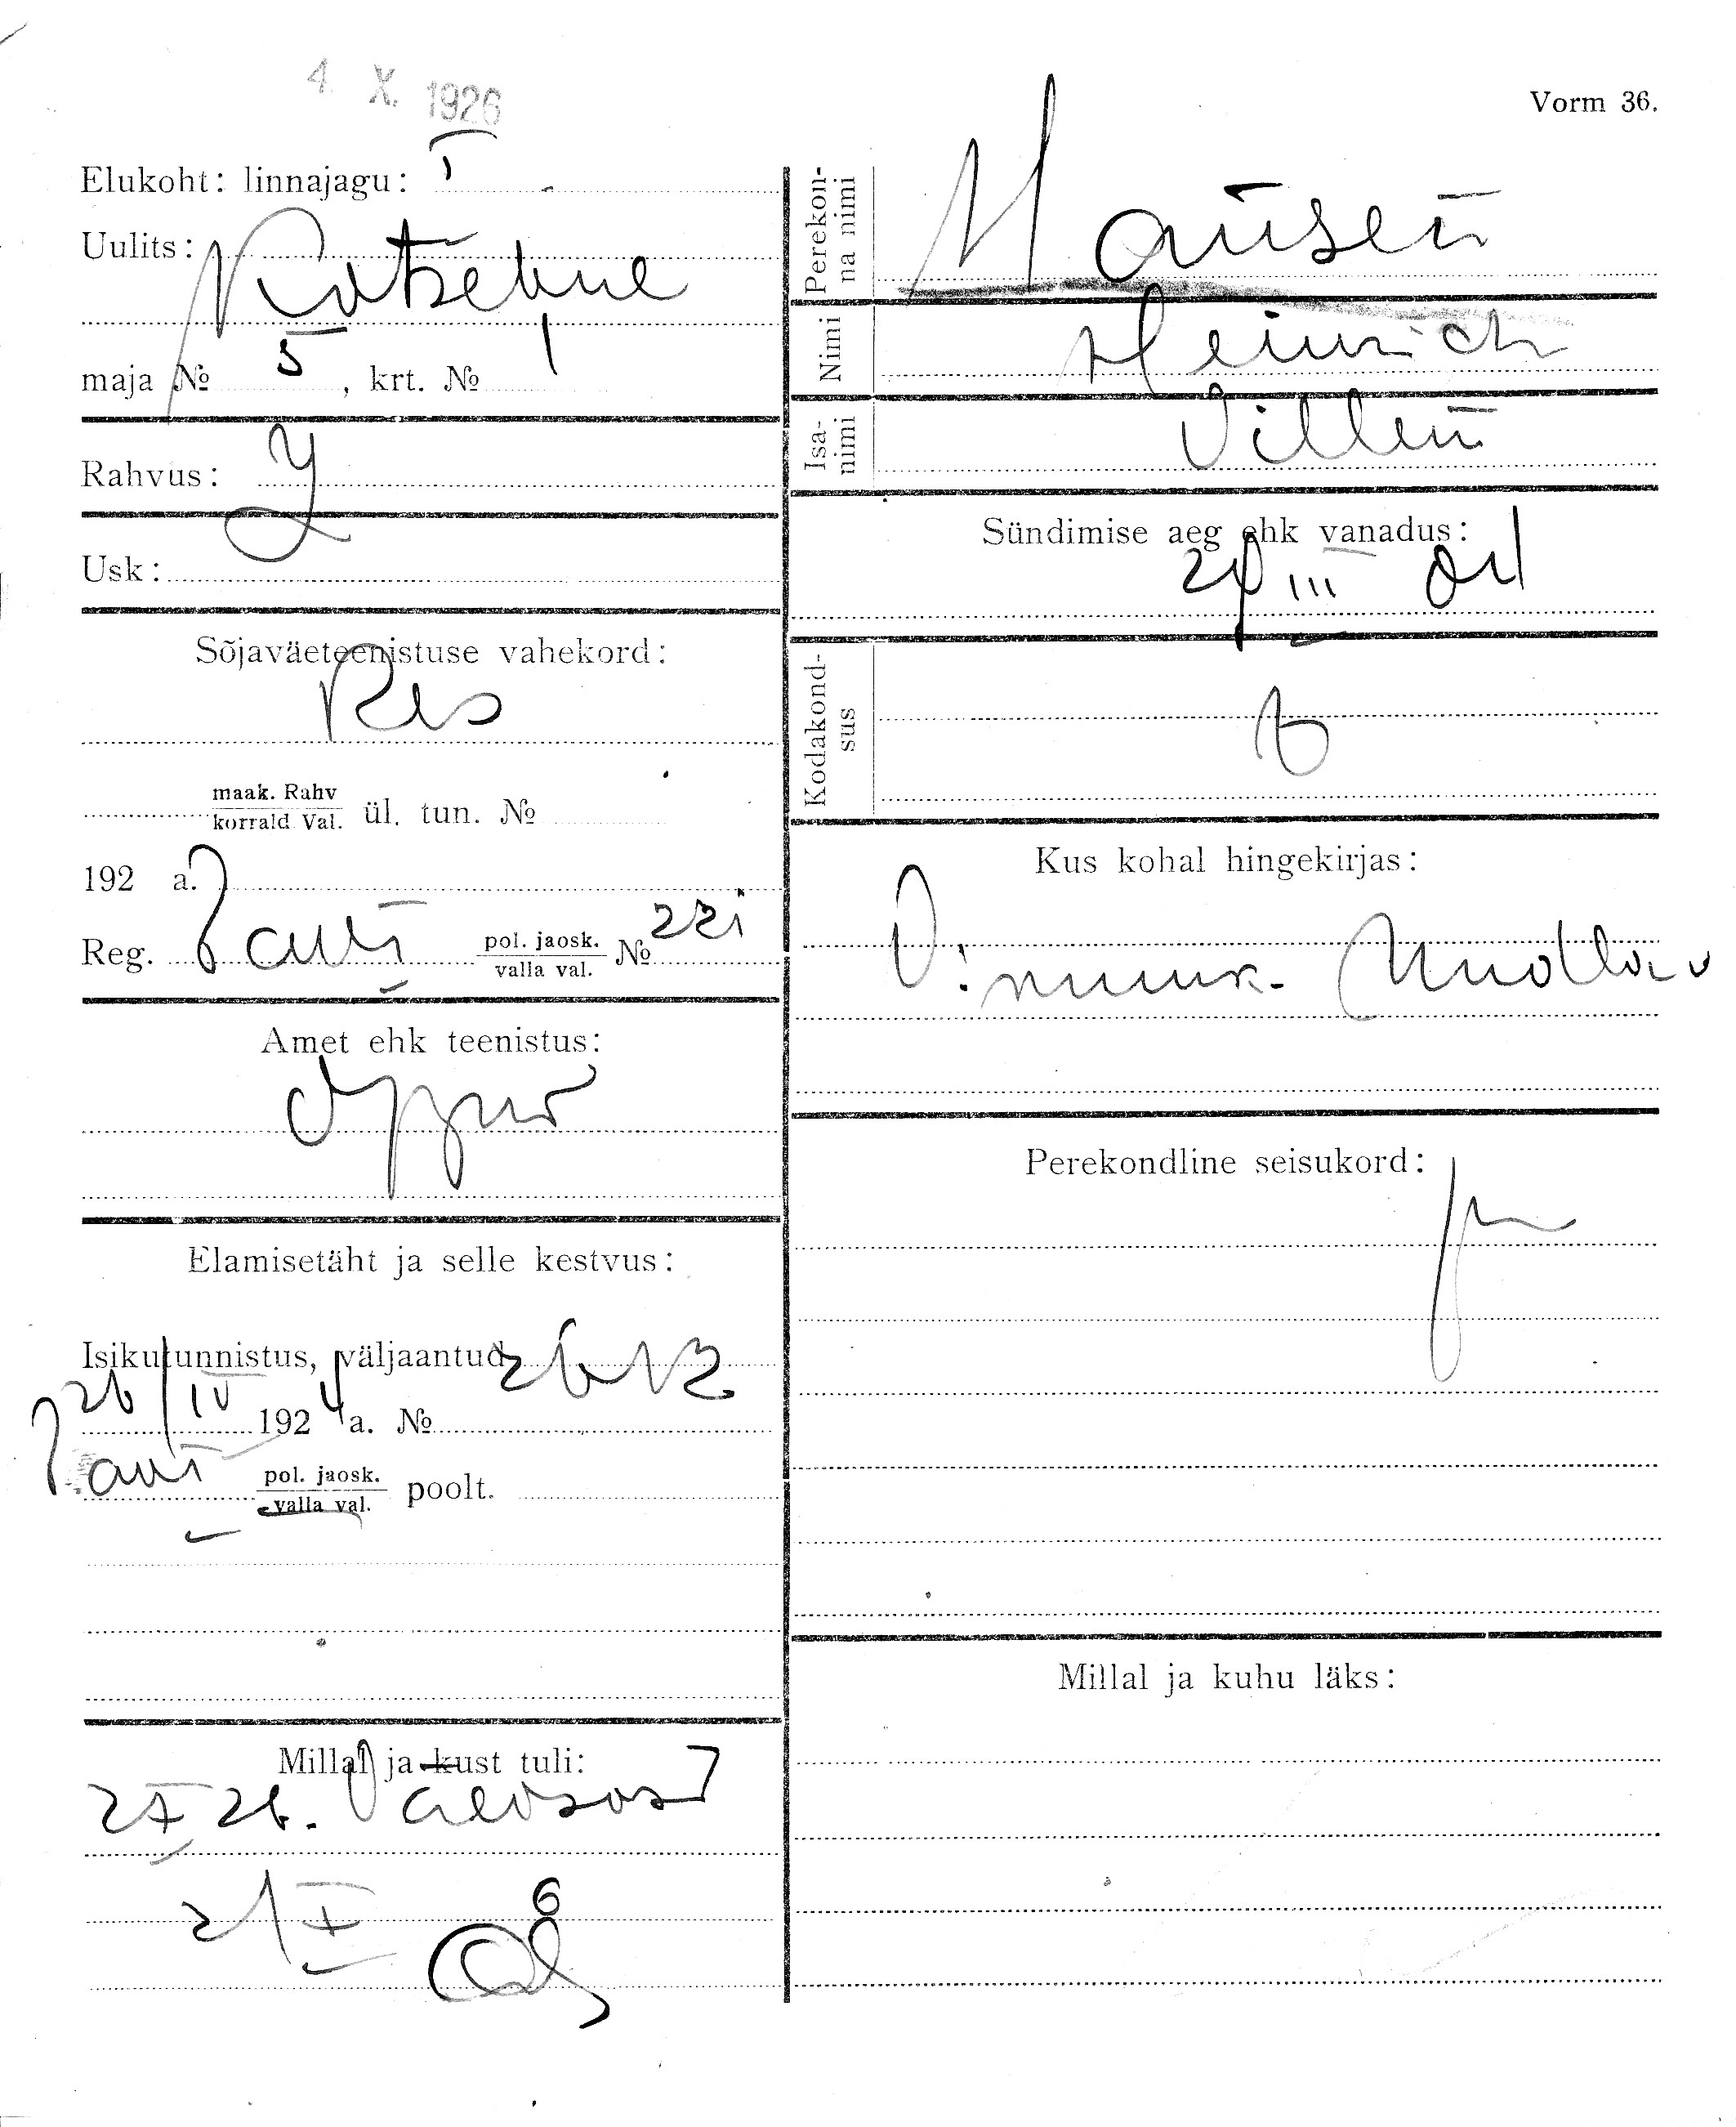 4. X. 1926
Vorm 36.
Elukoht: linnajagu: I
Uulits:
Kotsebue
maja № 5, krt. № 1
Rahvus:
Usk:
Sõjaväeteenistuse vahekord:
Res
maak. Rahv
korrald. Val. ül. tun. №
192 a.
Reg. pol. jaosk. № 221
valla val.
Amet ehk teenistus:
Elamisetäht ja selle kestvus:
Isikutunnistus, väljaantud 2612
26/IV 1924 a. №
pol. jaosk. poolt.
valla val.
Millal ja kust tuli:
2 X 26.
2/X 6
Perekonna nimi
Hansen
Nimi Heinrich
Isanimi Villem
Sündimise aeg ehk vanadus:
III
Kodakondsus
Kus kohal hingekirjas:
Perekondline seisukord:
Millal ja kuhu läks: